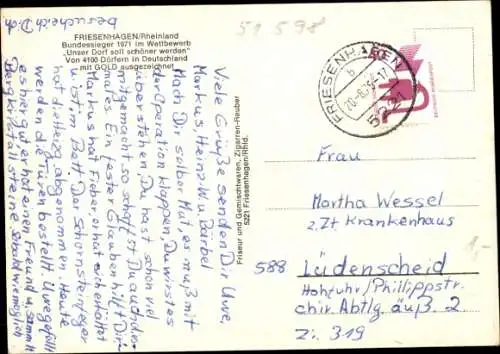 FRIESENHAGEN/Rheinland
Bundessieger 1971 im Wettbewerb
„Unser Dorf soll schöner werden"
Von 4100 Dörfern in Deutschland
mit GOLD ausgezeichnet
Viele Grüße senden Dir Uwe,
Markus, Heinz-W. u Bärbel
Mach Dir selber Mut, es muß mit
der Operation klappen, Du wirst es
überstehen, Du hast schon viel
mitgemacht, so schaffst Du auch der
males. Ein fester Glauben hilft Dir
Markus hat Fieber, er hat sich erkältet
u. ist im Bett. Der Schornsteinfeger
hat die Heizg abgenommen. Heute
werden die Türen bestellt. Uwe gefällt
es hier gut er hat einen Freund u. sammelt
Bergkristallsteine. sobald wie möglich
bescheid Dich
Friseur und Gemischtwaren, Zigarren-Reuber
5221 Friesenhagen/Rhld.
51 598
FRIESENHAGEN
b
-17
5221
Frau
Martha Wessel
z. Zt. Krankenhaus
588 Lüdenscheid
Hohfuhr/Philippstr.
chir. Abtlg. äuß. 2
Zi. 319
1,-